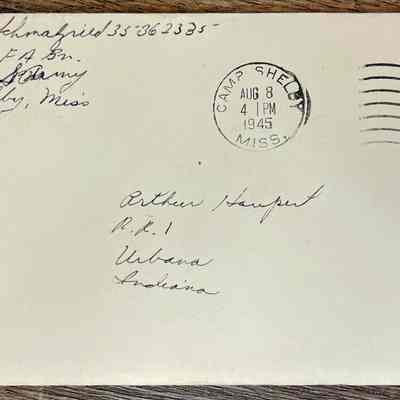 35362335
F A Bn.
Army
by, Miss
CAMP SHELBY
AUG 8
4 PM
1945
MISS.
Arthur Haupert
R. R. 1
Urbana
Indiana